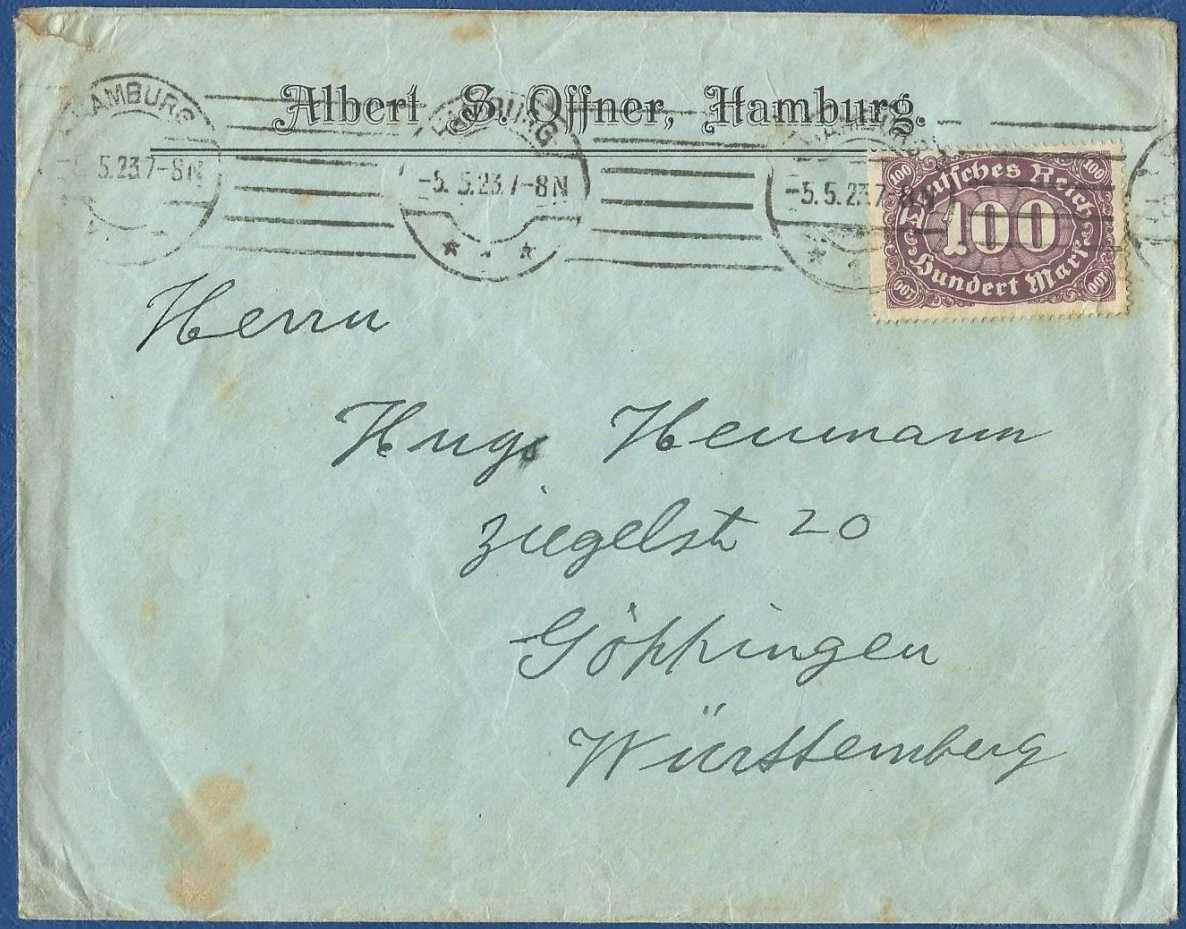 Albert S. Offner, Hamburg.
HAMBURG
5.23.7-8N
HAMBURG
-5.5.23.7-8N
-5.5.23.7-8N
100 100
Deutsches Reich
100
Hundert Mark
100 100
Herrn
Hugo Heumann
Ziegelstr 20
Göppingen
Württemberg